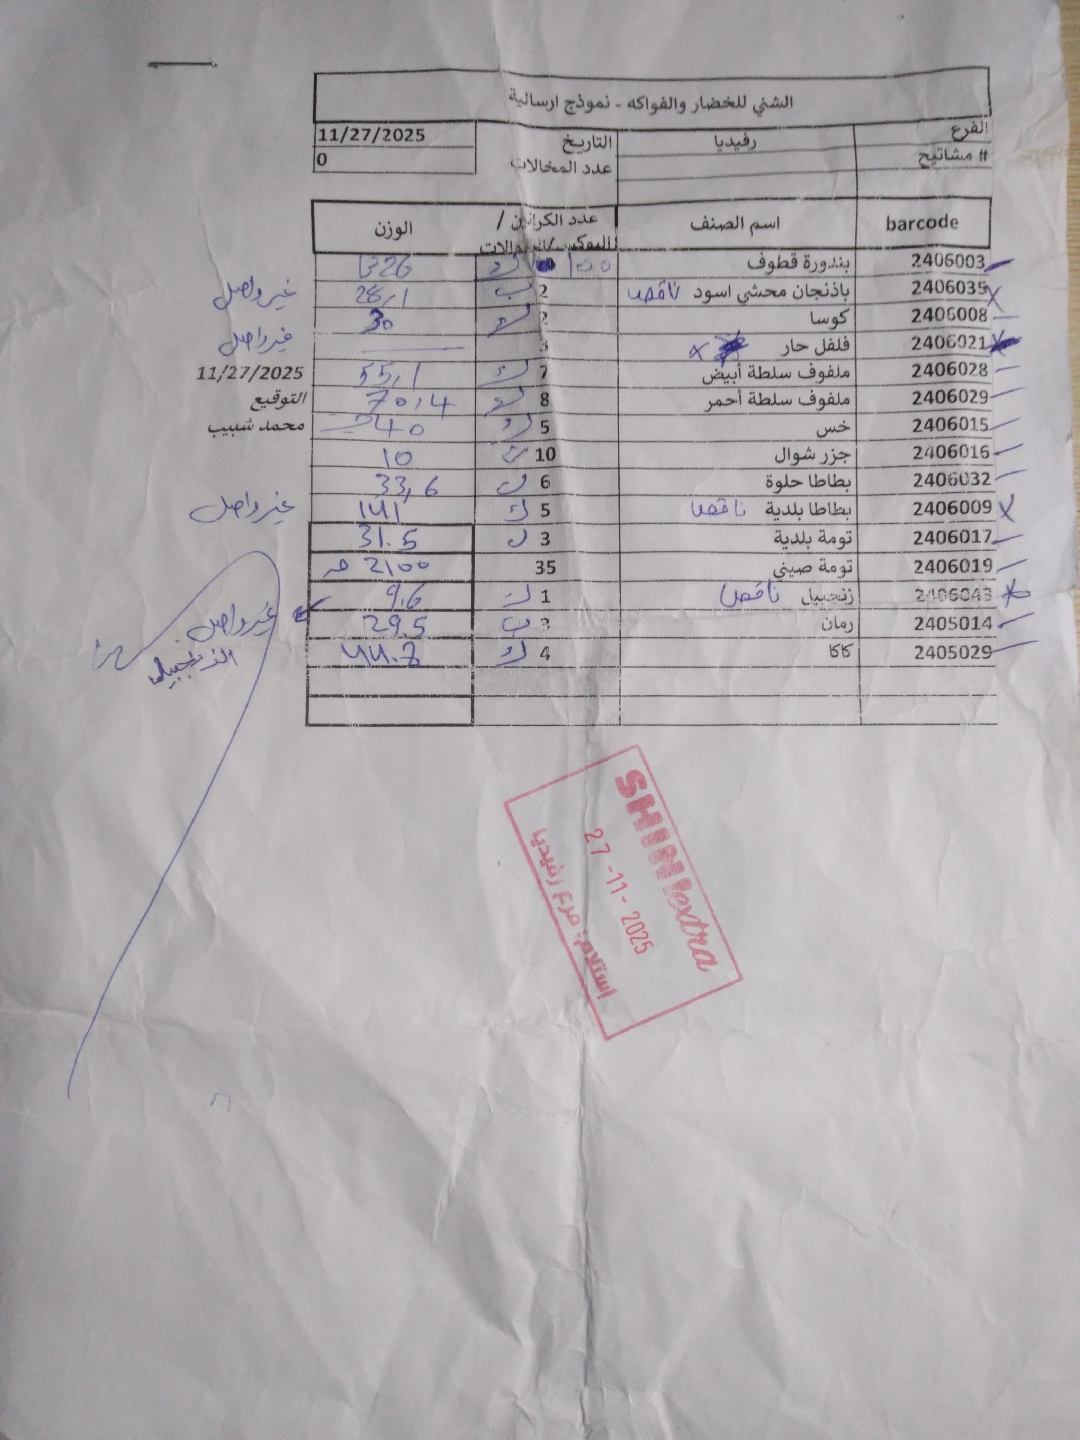 الشني للخضار والفواكه - نموذج ارسالية
الفرع رفيديا التاريخ 11/27/2025
# مشاتيح عدد المخالات 0
barcode اسم الصنف عدد الكراتين / البوكس / الشوالات الوزن
2406003 بندورة قطوف 100 1326
2406035 باذنجان محشي اسود ناقص 2 28,1 غير واصل
2406008 كوسا 2 30
2406021 فلفل حار x غير واصل
2406028 ملفوف سلطة أبيض 7 ك 55,1 11/27/2025
2406029 ملفوف سلطة أحمر 8 ك 70,4 التوقيع
2406015 خس 5 ك 40 محمد شبيب
2406016 جزر شوال 10 10
2406032 بطاطا حلوة 6 ك 33,6
2406009 بطاطا بلدية ناقص 5 ك 141 غير واصل
2406017 تومة بلدية 3 ك 31.5
2406019 تومة صيني 35 2100
2406043 زنجبيل ناقص 1 ك 9.6
2405014 رمان 3 29.5 غير واصل
2405029 كاكا 4 ك 44.8 الزنجبيل
SHINI extra
27-11-2025
استلام: فرع رفيديا